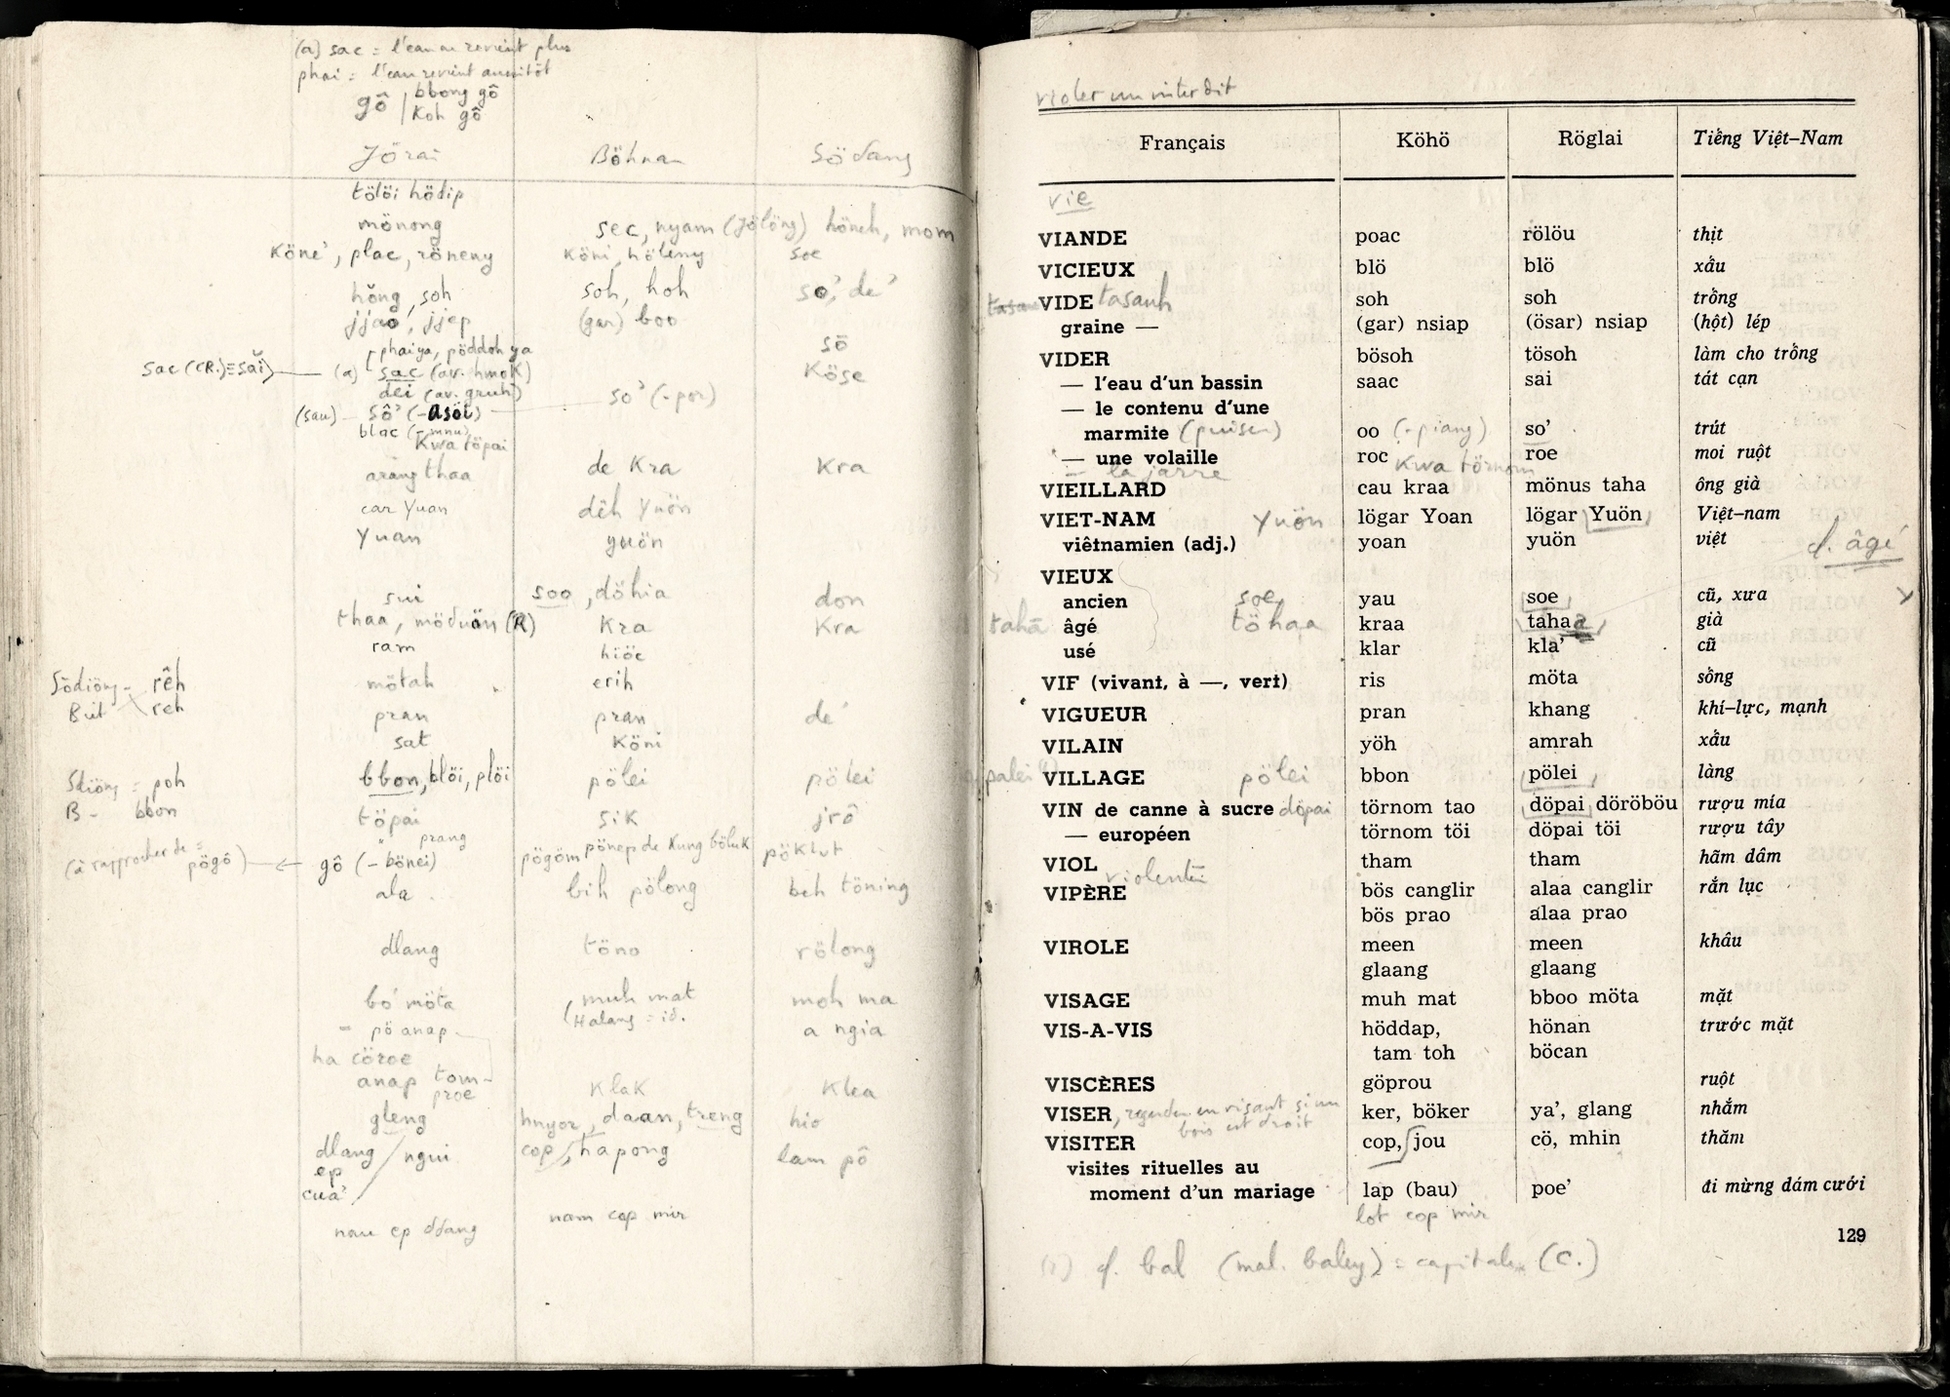 (a) sac = l'eau ne revient plus
phai = l'eau revient aussitôt
gô | bbong gô
Koh gô
Jörai Böhnar Södang
tölöi hödip
mönong sec, nyam (Jölöng) höneh, mom
Köne', plac, röneny köni, höleny soe
höng, soh soh, hoh so', de'
jjao', jjep (gar) boo
phaiya, pöddoh ya sö
sac (CR.) = sai (a) sac (av. hmoK) Köse
dei (av. gruh)
(sau) sô' (-asöi) so' (-por)
blac (-mnu)
Kwa töpai
arang thaa de Kra Kra
car Yuan dêh Yuön
Yuan yuön
sui soo, döhia don
thaa, möduön (R) Kra Kra
ram hiöc
Södiöng - rêh mötah erih
But reh
pran pran de'
sat Köni
Sdiöng = poh bbon, blöi, plöi pölei pölei
B - bbon
töpai sik jrô
prang
(à rapprocher de = pögô) gô (- bönei) pögöm pönep de Kung böluK pöklut
ala bih pölong beh töning
dlang töno rölong
bô' möta muh mat moh ma
- pö anap (Halang = id. a ngia
ha cöroe
anap tom-
proe klak klea
gleng hnyor, daan, treng hio
dlang / ngui cop, hapong lam pô
ep
cua'
nau ep ddang nam cop mir
violer un interdit
Français Köhö Röglai Tiếng Việt-Nam
vie
VIANDE poac rölöu thịt
VICIEUX blö blö xấu
VIDE tasanh soh soh trống
graine — (gar) nsiap (ösar) nsiap (hột) lép
VIDER bösoh tösoh làm cho trống
— l'eau d'un bassin saac sai tát cạn
— le contenu d'une
marmite (puiser) oo (-piang) so' trút
— une volaille roc roe moi ruột
— la jarre Kwa törnom
VIEILLARD cau kraa mönus taha ông già
VIET-NAM Yuön lögar Yoan lögar Yuön Việt-nam
viêtnamien (adj.) yoan yuön việt
cf. âgé
VIEUX
ancien soe yau soe cũ, xưa
tahā âgé töhaa kraa tahaa già
usé klar kla' cũ
VIF (vivant, à —, vert) ris möta sống
VIGUEUR pran khang khí-lực, mạnh
VILAIN yöh amrah xấu
palei (1) VILLAGE pölei bbon pölei làng
VIN de canne à sucre döpai törnom tao döpai döröböu rượu mía
— européen törnom töi döpai töi rượu tây
VIOL tham tham hãm dâm
violenter
VIPÈRE bös canglir alaa canglir rắn lục
bös prao alaa prao
VIROLE meen meen khâu
glaang glaang
VISAGE muh mat bboo möta mặt
VIS-A-VIS höddap, hönan trước mặt
tam toh böcan
VISCÈRES göprou ruột
VISER, regarder en visant si un ker, böker ya', glang nhắm
bois est droit
VISITER cop, jou cö, mhin thăm
visites rituelles au
moment d'un mariage lap (bau) poe' đi mừng dám cưới
lot cop mir
129
(1) cf. bal (mal. baley) = capitale (C.)